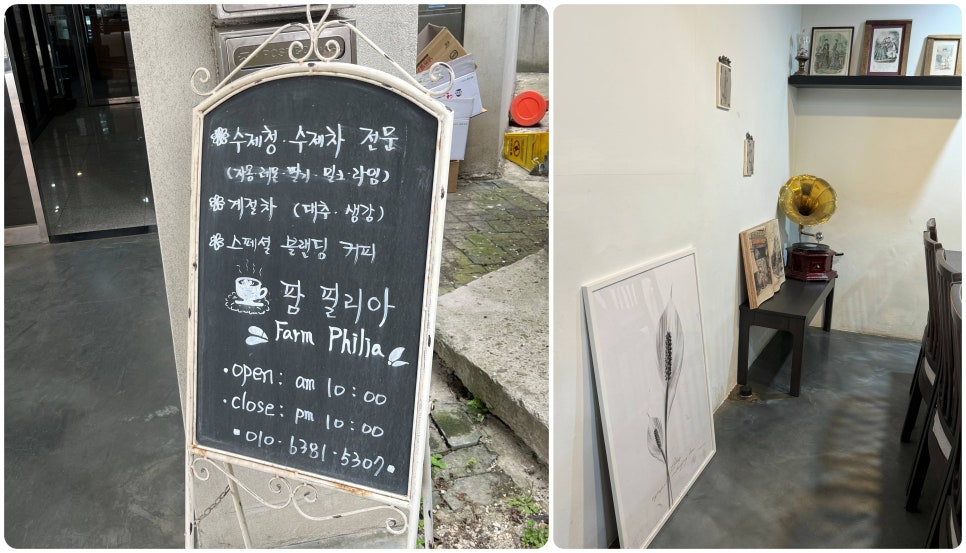 수제청·수제차 전문
(자몽·레몬·딸기·밀크·라임)
계절차 (대추·생강)
스페셜 블랜딩 커피
팜 필리아
Farm Philia
•open: am 10:00
•close: pm 10:00
▪010·6381·5307▪